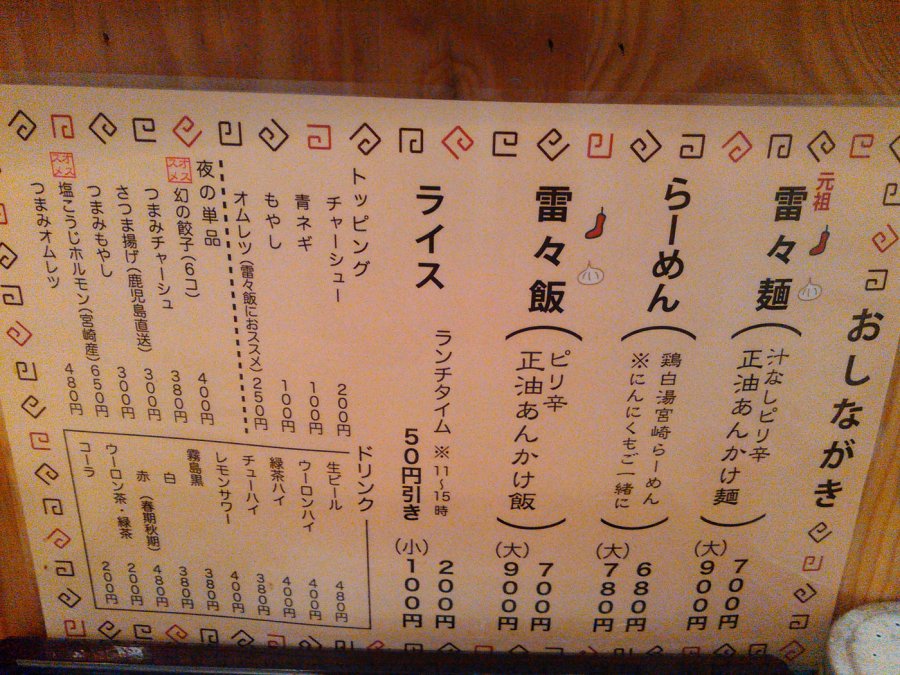 おしながき
元祖
雷々麺
(汁なしピリ辛
正油あんかけ麺)
700円
(大)900円
らーめん
(鶏白湯宮崎らーめん
※にんにくもご一緒に)
680円
(大)780円
雷々飯
(ピリ辛
正油あんかけ飯)
700円
(大)900円
ライス
200円
(小)100円
ランチタイム ※11〜15時
50円引き
トッピング
チャーシュー 200円
青ネギ 100円
もやし 100円
オムレツ(雷々飯におススメ)250円
夜の単品
オススメ
幻の餃子(6コ) 400円
つまみチャーシュ 380円
さつま揚げ(鹿児島直送) 300円
つまみもやし 300円
オススメ
塩こうじホルモン(宮崎産)650円
つまみオムレツ 480円
ドリンク
生ビール 480円
ウーロンハイ 400円
緑茶ハイ 400円
チューハイ 380円
レモンサワー 400円
霧島黒 380円
白 380円
赤(春期秋期) 480円
ウーロン茶・緑茶 200円
コーラ 200円